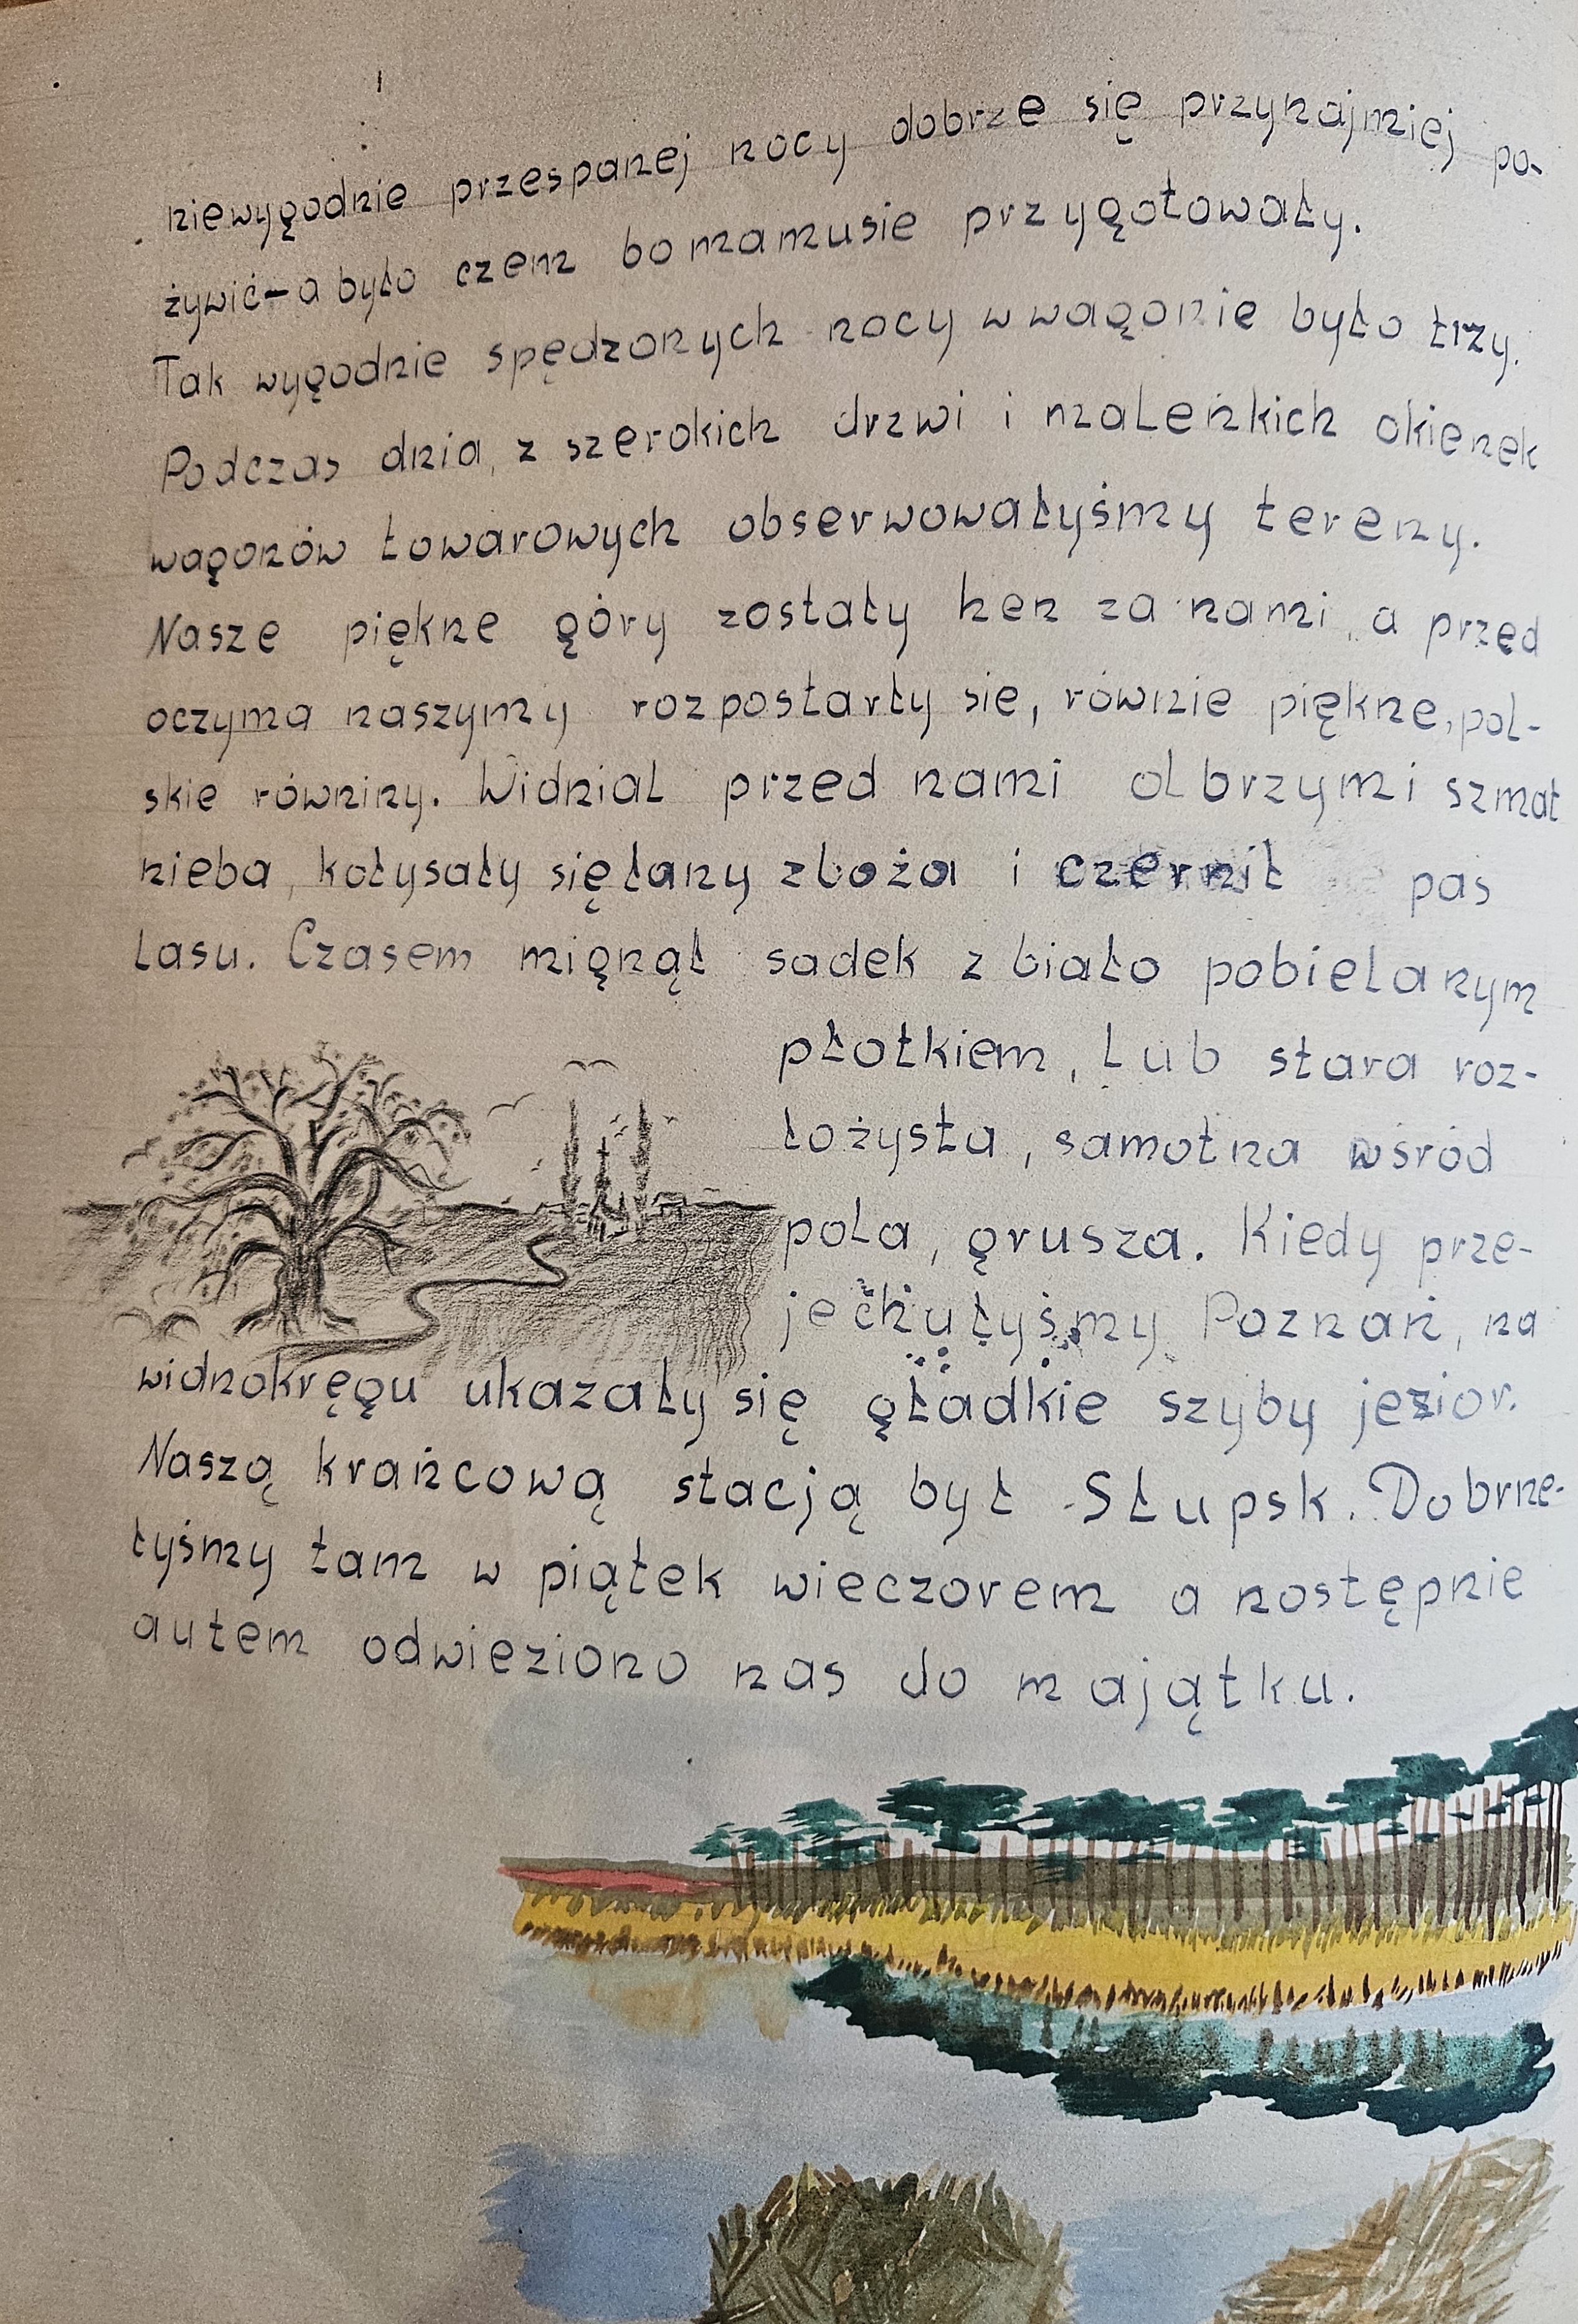 niewygodnie przespanej nocy dobrze się przynajmniej po-
żywić - a było czem bo mamusie przygotowały.
Tak wygodnie spędzonych nocy w wagonie było trzy.
Podczas dnia, z szerokich drzwi i maleńkich okienek
wagonów towarowych obserwowałyśmy tereny.
Nasze piękne góry zostały hen za nami, a przed
oczyma naszymy rozpostarły sie, równie piękne, pol-
skie równiny. Widniał przed nami olbrzymi szmat
nieba, kołysały się łany zboża i czernił pas
lasu. Czasem mignął sadek z biało pobielanym
płotkiem, lub stara roz-
łożysta, samotna wśród
pola, grusza. Kiedy prze-
jechułyśmy Poznań, na
widnokręgu ukazały się gładkie szyby jezior.
Naszą krańcową stacją był Słupsk. Dobrne-
łyśmy tam w piątek wieczorem a nostępnie
autem odwieziono nas do majątku.